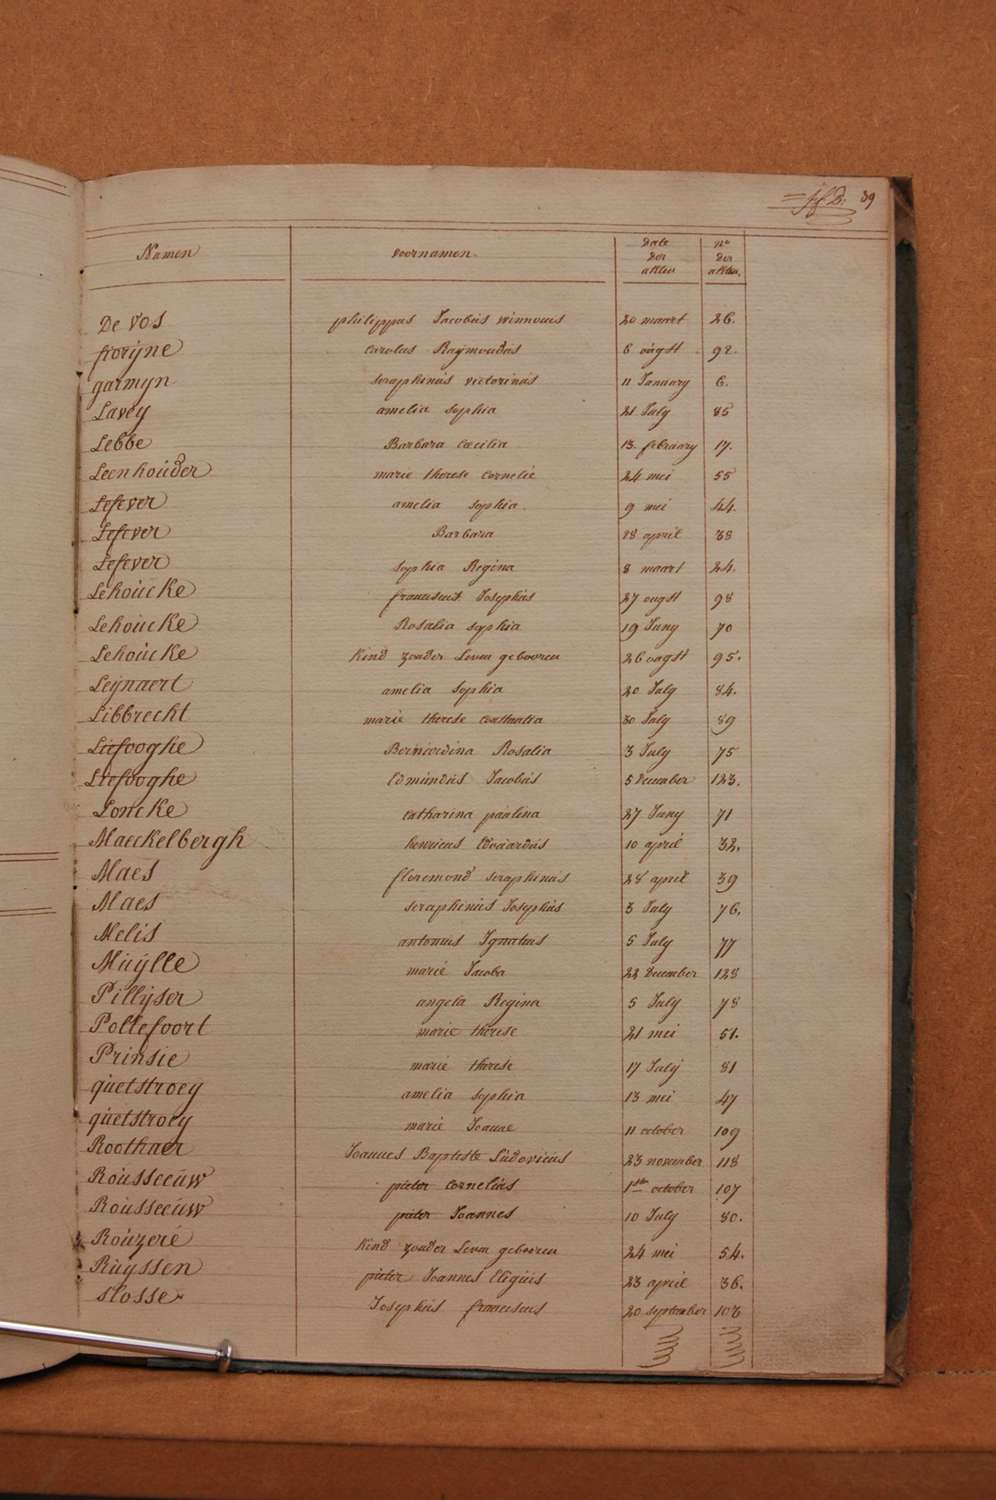 39
Namen voornamen date der akten n° der akten.
De Vos philippus Jacobus winnocus 20 maart 26.
froryne Carolus Raymondus 6 oügst 92.
garmyn seraphinüs victorinüs 11 January 6.
Lavey amelia sophia 21 July 85
Lebbe Barbara Cœcilia 13 februäry 17.
Leenhoüder marie therese Cornelie 24 mei 55
Lefever amelia sophia. 9 mei 44.
Lefever Barbara 28 april 38
Lefever sophia Regina 8 maart 24.
Lehoücke franciscus Josephüs 27 ougst 98
Lehoücke Rosalia sophia 19 Juny 70
Lehoücke Kind zonder Leven gebooren 26 oügst 95.
Leynaert amelia sophia 20 July 84.
Libbrecht marie therese Constantia 30 July 89
Liefooghe Bernardina Rosalia 3 July 75
Liefooghe Edmündüs Jacobüs 5 December 123.
Loncke Catharina paülina 27 Juny 71
Maeckelbergh henricus Edüardüs 10 april 32.
Maes floremond seraphinüs 28 april 39
Maes seraphinüs Josephüs 3 July 76.
Melis antonius Ignatius 5 July 77
Müylle marie Jacoba 22 December 128
Pillyser angela Regina 5 July 78
Pollefoort marie therese 21 mei 51.
Prinsie marie therese 17 July 81
qüetstroey amelia sophia 13 mei 47
qüetstroey marie Joanne 11 october 109
Roothaer Joannes Baptiste Lüdovicüs 23 november 118
Roüsseeüw pieter Cornelius 1ste october 107
Roüsseeüw pieter Joannes 10 July 80.
Roüzeré Kind zonder Leven gebooren 24 mei 54.
Rüyssen pieter Joannes Eligiüs 23 april 36.
slosse Josephüs franciscus 20 september 103